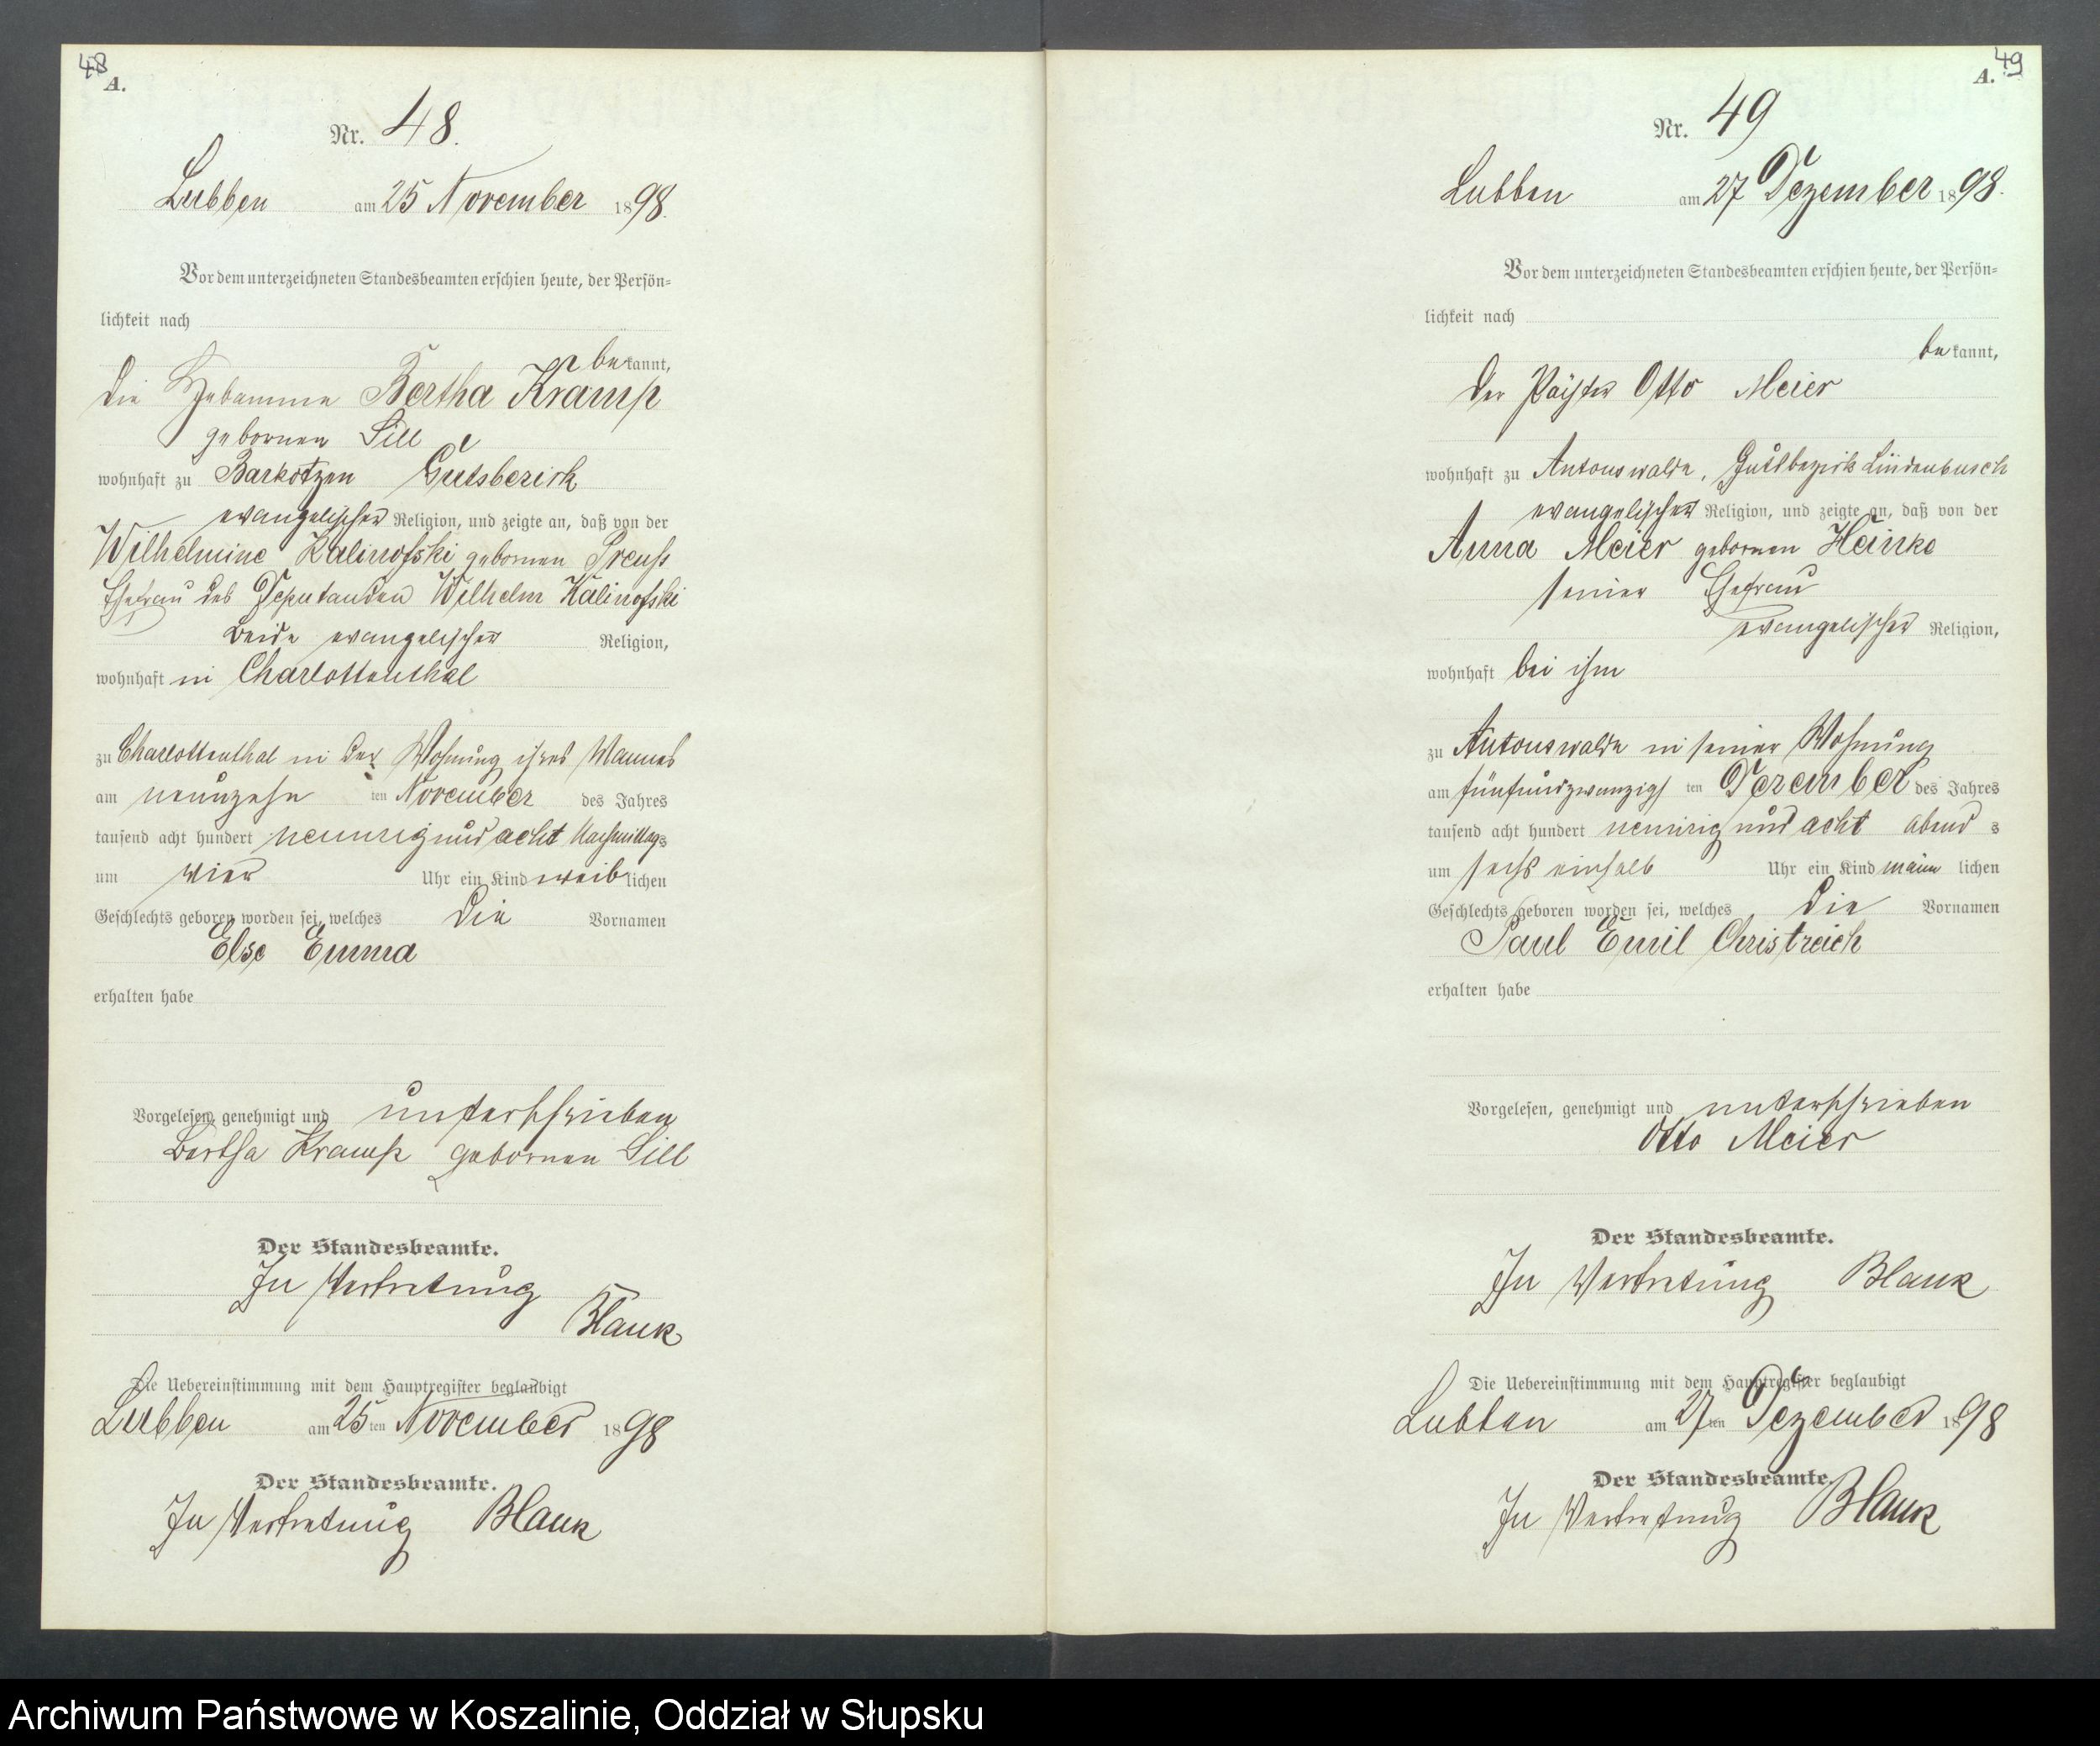 48
A.
Nr. 48.
Lubben am 25 November 1898.
Vor dem unterzeichneten Standesbeamten erschien heute, der Persön-
lichkeit nach
bekannt,
die Hebamme Bertha Kramp
gebornen Sill
wohnhaft zu Barkotzen Gutsbezirk
evangelischer Religion, und zeigte an, daß von der
Wilhelmine Kalinofski gebornen Preuß
Ehefrau des Deputanden Wilhelm Kalinofski
beide evangelischer Religion,
wohnhaft in Charlottenthal
zu Charlottenthal in der Wohnung ihres Mannes
am neunzehn ten November des Jahres
tausend acht hundert neunzig und acht Nachmittags
um vier Uhr ein Kind weiblichen
Geschlechts geboren worden sei, welches die Vornamen
Else Emma
erhalten habe
Vorgelesen, genehmigt und unterschrieben
Bertha Kramp gebornen Sill
Der Standesbeamte.
In Vertretung
Blank
Die Uebereinstimmung mit dem Hauptregister beglaubigt
Lubben am 25ten November 1898
Der Standesbeamte.
In Vertretung Blank
49
A.
Nr. 49
Lubben am 27 Dezember 1898.
Vor dem unterzeichneten Standesbeamten erschien heute, der Persön-
lichkeit nach
bekannt,
der Otto Meier
wohnhaft zu Antonswalde, Gutsbezirk Lindenbusch
evangelischer Religion, und zeigte an, daß von der
Anna Meier gebornen Heinke
seiner Ehefrau
evangelischer Religion,
wohnhaft bei ihm
zu Antonswalde in seiner Wohnung
am fünfundzwanzigs ten Dezember des Jahres
tausend acht hundert neunzig und acht abends
um sechs einhalb Uhr ein Kind männlichen
Geschlechts geboren worden sei, welches die Vornamen
Paul Emil Christreich
erhalten habe
Vorgelesen, genehmigt und unterschrieben
Otto Meier
Der Standesbeamte.
In Vertretung Blank
Die Uebereinstimmung mit dem Hauptregister beglaubigt
Lubben am 27ten Dezember 1898
Der Standesbeamte.
In Vertretung Blank
Archiwum Państwowe w Koszalinie, Oddział w Słupsku